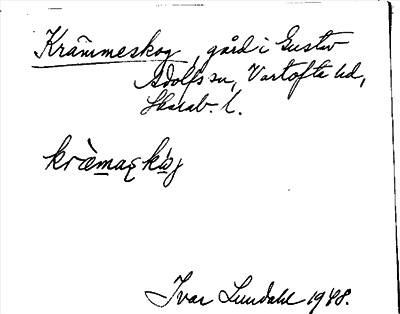 Krämmeskog, gård i Gustav
Adolfs sn, Vartofta hd,
Skarab. l.
Ivar Lundahl 1948.